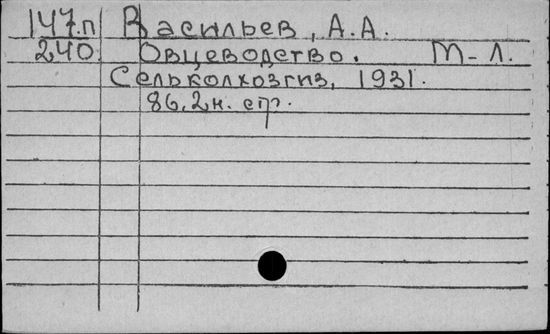 147.п Васильев, А.А.
240 Овцеводство. М-Л.
Сельколхозгиз, 1931.
86,2 н. стр.